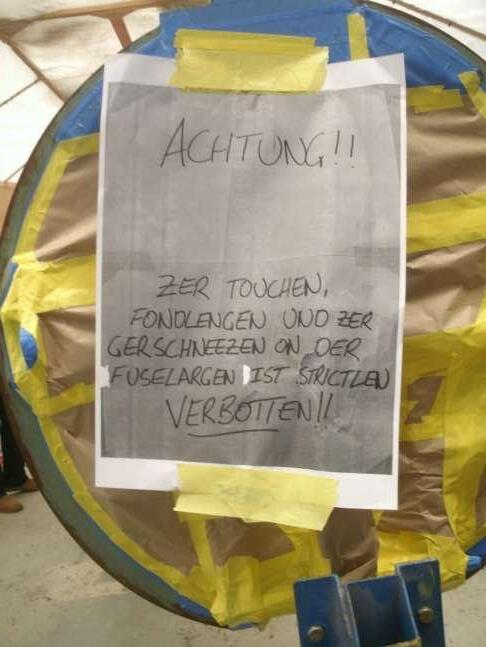 ACHTUNG!!
ZER TOUCHEN,
FONDLENGEN UND ZER
GERSCHNEEZEN ON DER
FUSELARGEN IST STRICTLEN
VERBOTTEN!!